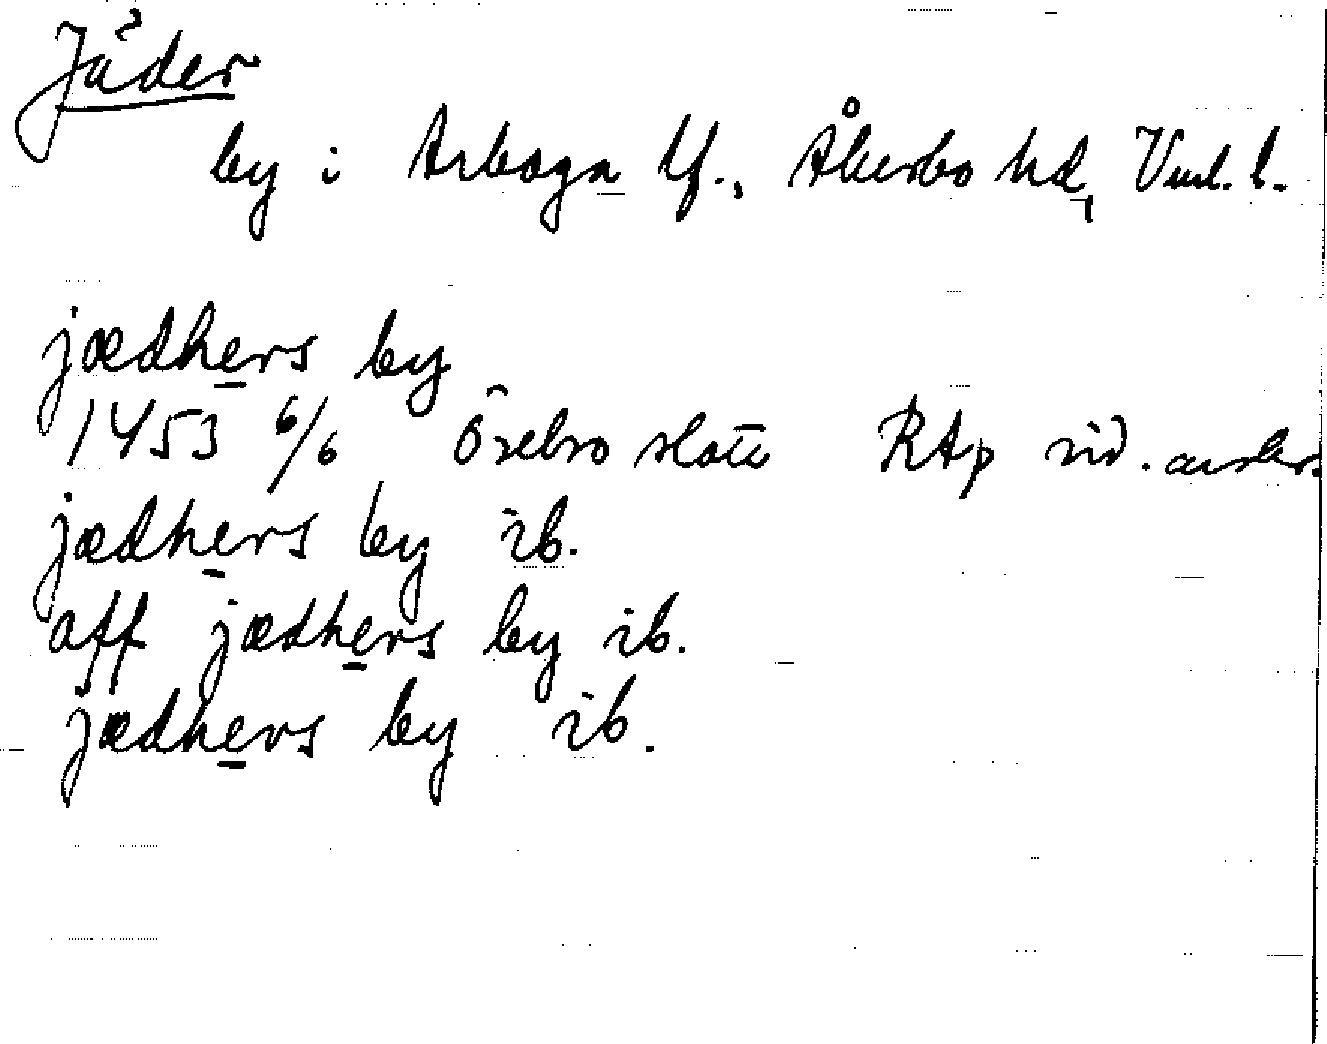 Jäder
by i Arboga lf., Åkerbo hd, Vml. l.
jædhers by
1453 6/6 Örebro slott RAp
jædhers by ib.
aff jædhers by ib.
jædhers by ib.